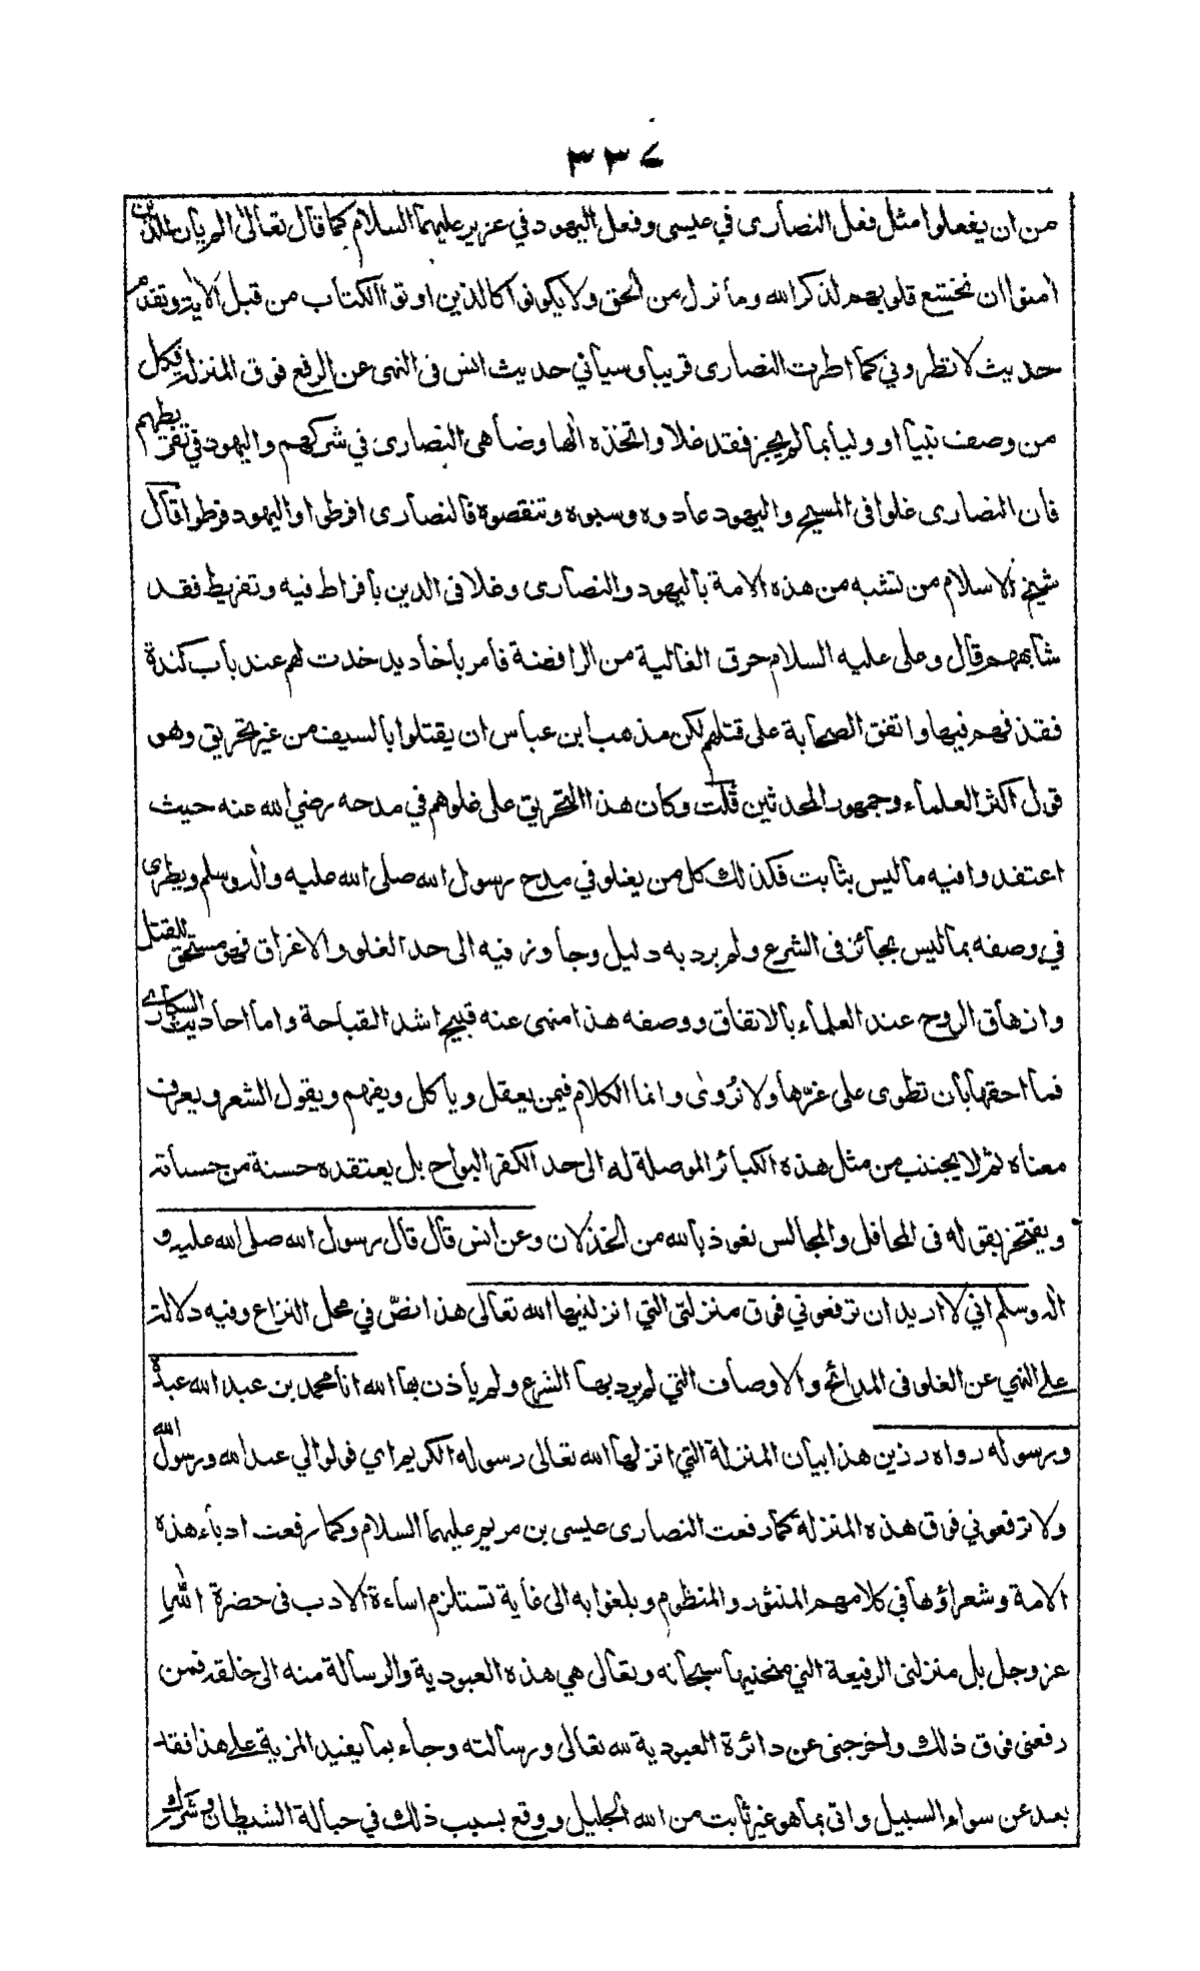 ٣٣٤
من ان يفعلوا مثل فعل النصارى في عيسى وفعل اليهود في عزير عليهما السلام كما قال تعالى الم يأن للذين
امنوا ان تخشع قلوبهم لذكر الله وما نزل من الحق ولا يكونوا كالذين اوتوا الكتاب من قبل الأية وتقدم
حديث لا تطروني كما اطرت النصارى قريبا وسيأتي حديث انس فى النهى عن الرفع فوق المنزلة فكل
من وصف نبيا او وليا بما لم يجز فقد غلا واتخذه الها وضاهى النصارى في شركهم واليهود في تفريطهم
فان النصارى غلوا فى المسيح واليهود عادوه وسبوه وتنقصوه فالنصارى افرطوا واليهود فرطوا قال
شيخ الاسلام من تشبه من هذه الامة باليهود والنصارى وغلا فى الدين بافراط فيه وتفريط فقد
شابههم قال وعلى عليه السلام حرق الغالية من الرافضة فأمر بأخاديد خدت لهم عند باب كندة
فقذفهم فيها واتفق الصحابة على قتلهم لكن مذهب ابن عباس ان يقتلوا بالسيف من غير تحريق وهو
قول اكثر العلماء وجمهور المحدثين قلت وكان هذا التحريق على غلوهم في مدحه رضي الله عنه حيث
اعتقدوا فيه ما ليس بثابت فكذلك كل من يغلو في مدح رسول الله صلى الله عليه واله وسلم ويطرى
في وصفه بما ليس بجائز فى الشرع ولم يرد به دليل وجاوز فيه الى حد الغلو والاغراق فهو مستحق للقتل
وازهاق الروح عند العلماء بالاتفاق ووصفه هذا منهى عنه قبيح اشد القباحة واما احاديث السكارى
فما احقها بأن تطوى على غرّها ولا تُروى وانما الكلام فيمن يعقل ويأكل ويفهم ويقول الشعر ويعرف
معناه ثم لا يجتنب من مثل هذه الكبائر الموصلة له الى حد الكفر البواح بل يعتقده حسنة من حسناته
ويفتخر بقوله فى المحافل والمجالس نعوذ بالله من الخذلان وعن انس قال قال رسول الله صلى الله عليه و
اله وسلم اني لا اريد ان ترفعوني فوق منزلتى التي انزلنيها الله تعالى هذا نصّ في محل النزاع وفيه دلالة
على النهي عن الغلو فى المدائح والاوصاف التي لم يرد بها الشرع ولم يأذن بها الله انا محمد بن عبد الله عبدة
ورسوله رواه رزين هذا بيان المنزلة التي انزلها الله تعالى رسوله الكريم اي قولوا لي عبد الله ورسول الله
ولا ترفعوني فوق هذه المنزلة كما رفعت النصارى عيسى بن مريم عليهما السلام وكما رفعت ادباء هذه
الامة وشعراؤها في كلامهم المنثور والمنظوم وبلغوا به الى غاية تستلزم اساءة الادب فى حضرة
عز وجل بل منزلتى الرفيعة التي منحنيها سبحانه وتعالى هي هذه العبودية والرسالة منه الى خلقه فمن
رفعنى فوق ذلك واخرجنى عن دائرة العبودية لله تعالى ورسالته وجاء بما يفيد المزية على هذا فقد
بعد عن سواء السبيل واتى بما هو غير ثابت من الله الجليل ووقع بسبب ذلك في حبالة الشيطان وشرك